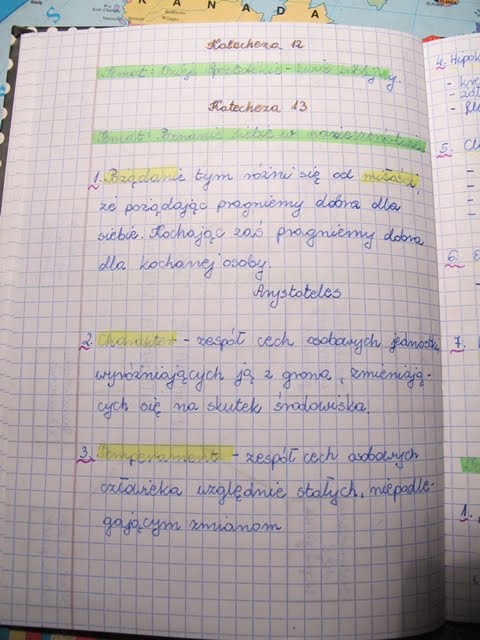 KANADA
Katecheza 12
Temat:
Katecheza 13
Temat: Poznanie siebie w narzeczeństwie.
1. Pożądanie tym różni się od miłości,
że pożądając pragniemy dobra dla
siebie. Kochając zaś pragniemy dobra
dla kochanej osoby.
Arystoteles
2. Charakter - zespół cech osobowych jednostki,
wyróżniających ją z grona, zmieniają-
cych się na skutek środowiska.
3. Temperament - zespół cech osobowych
człowieka względnie stałych, niepodle-
gającym zmianom
4. Hipok
5.
6.
7.
1.